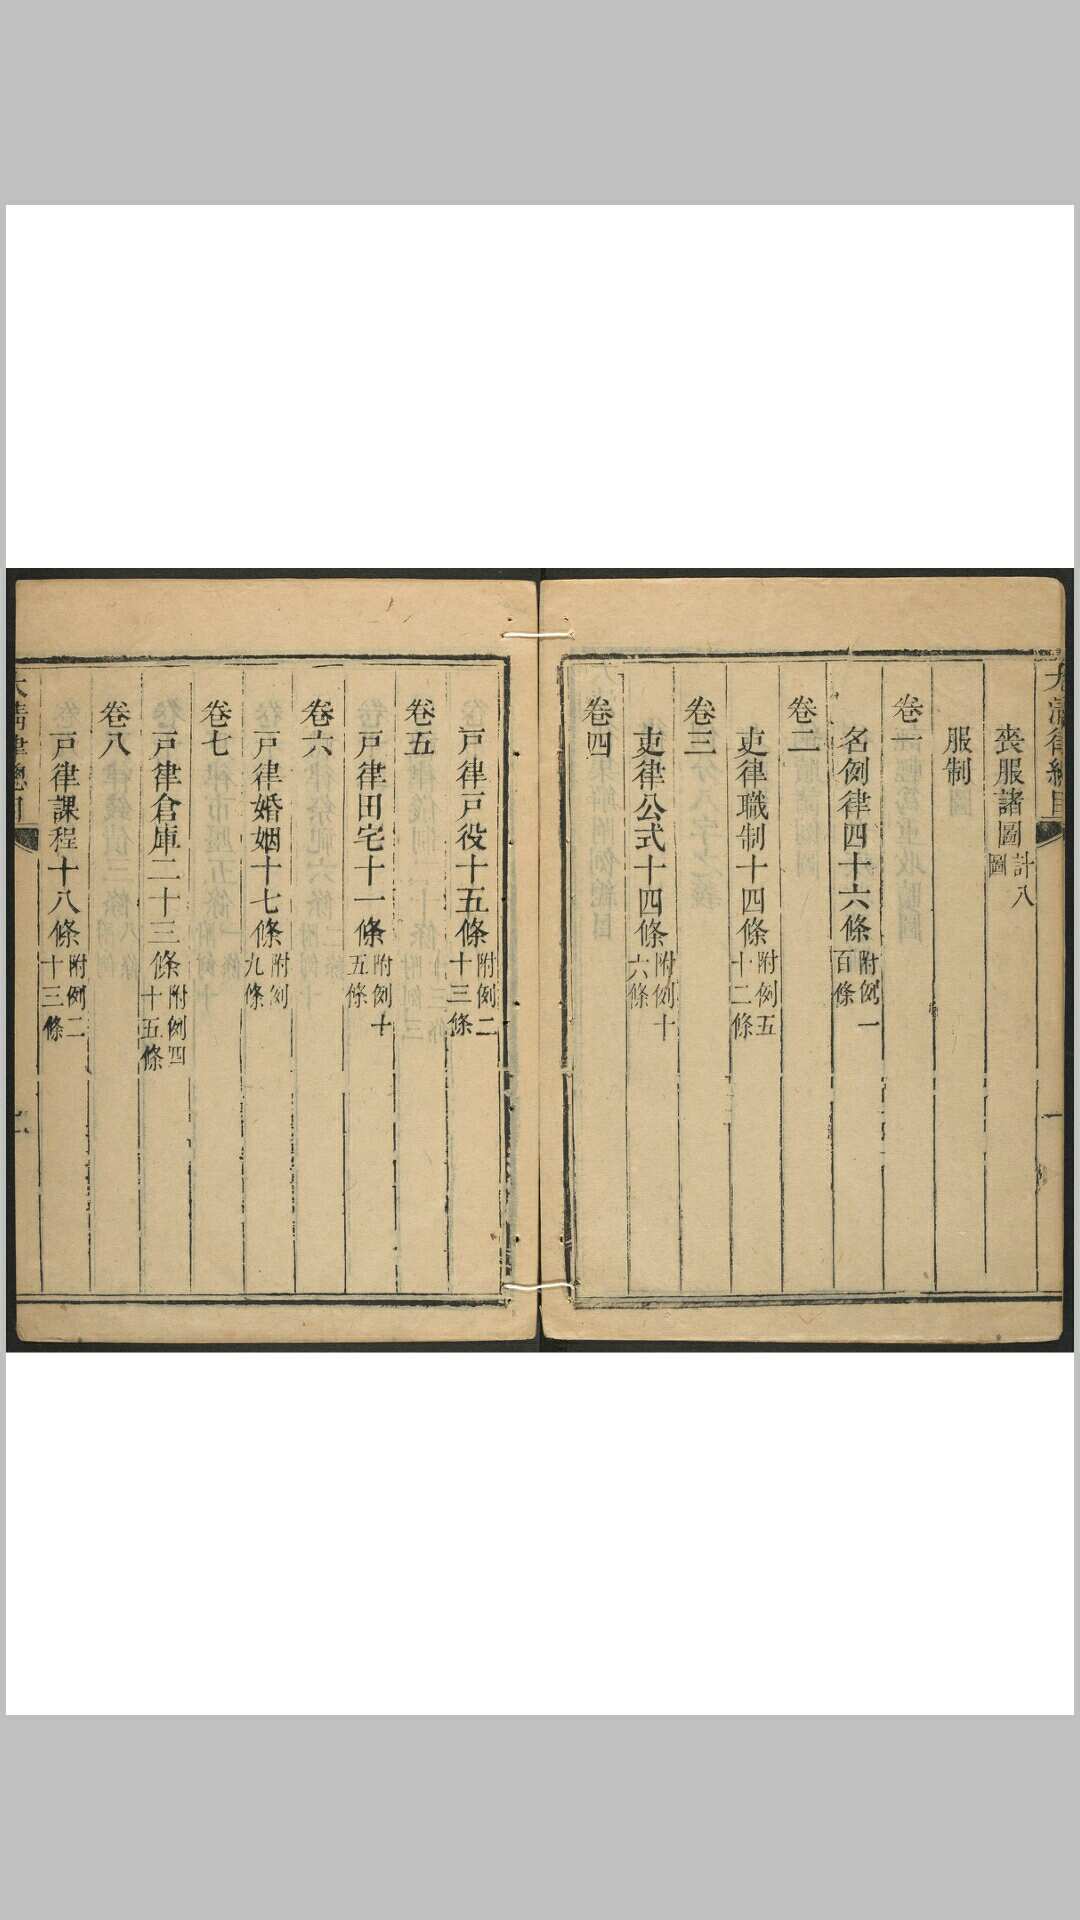 大清律總目
一
喪服諸圖計八圖
服制
卷一
名例律四十六條附例一百條
卷二
吏律職制十四條附例五十二條
卷三
吏律公式十四條附例十六條
卷四
戸律戸役十五條附例二十三條
卷五
戸律田宅十一條附例十五條
卷六
戸律婚姻十七條附例九條
卷七
戸律倉庫二十三條附例四十五條
卷八
戸律課程十八條附例二十三條
大清律總目